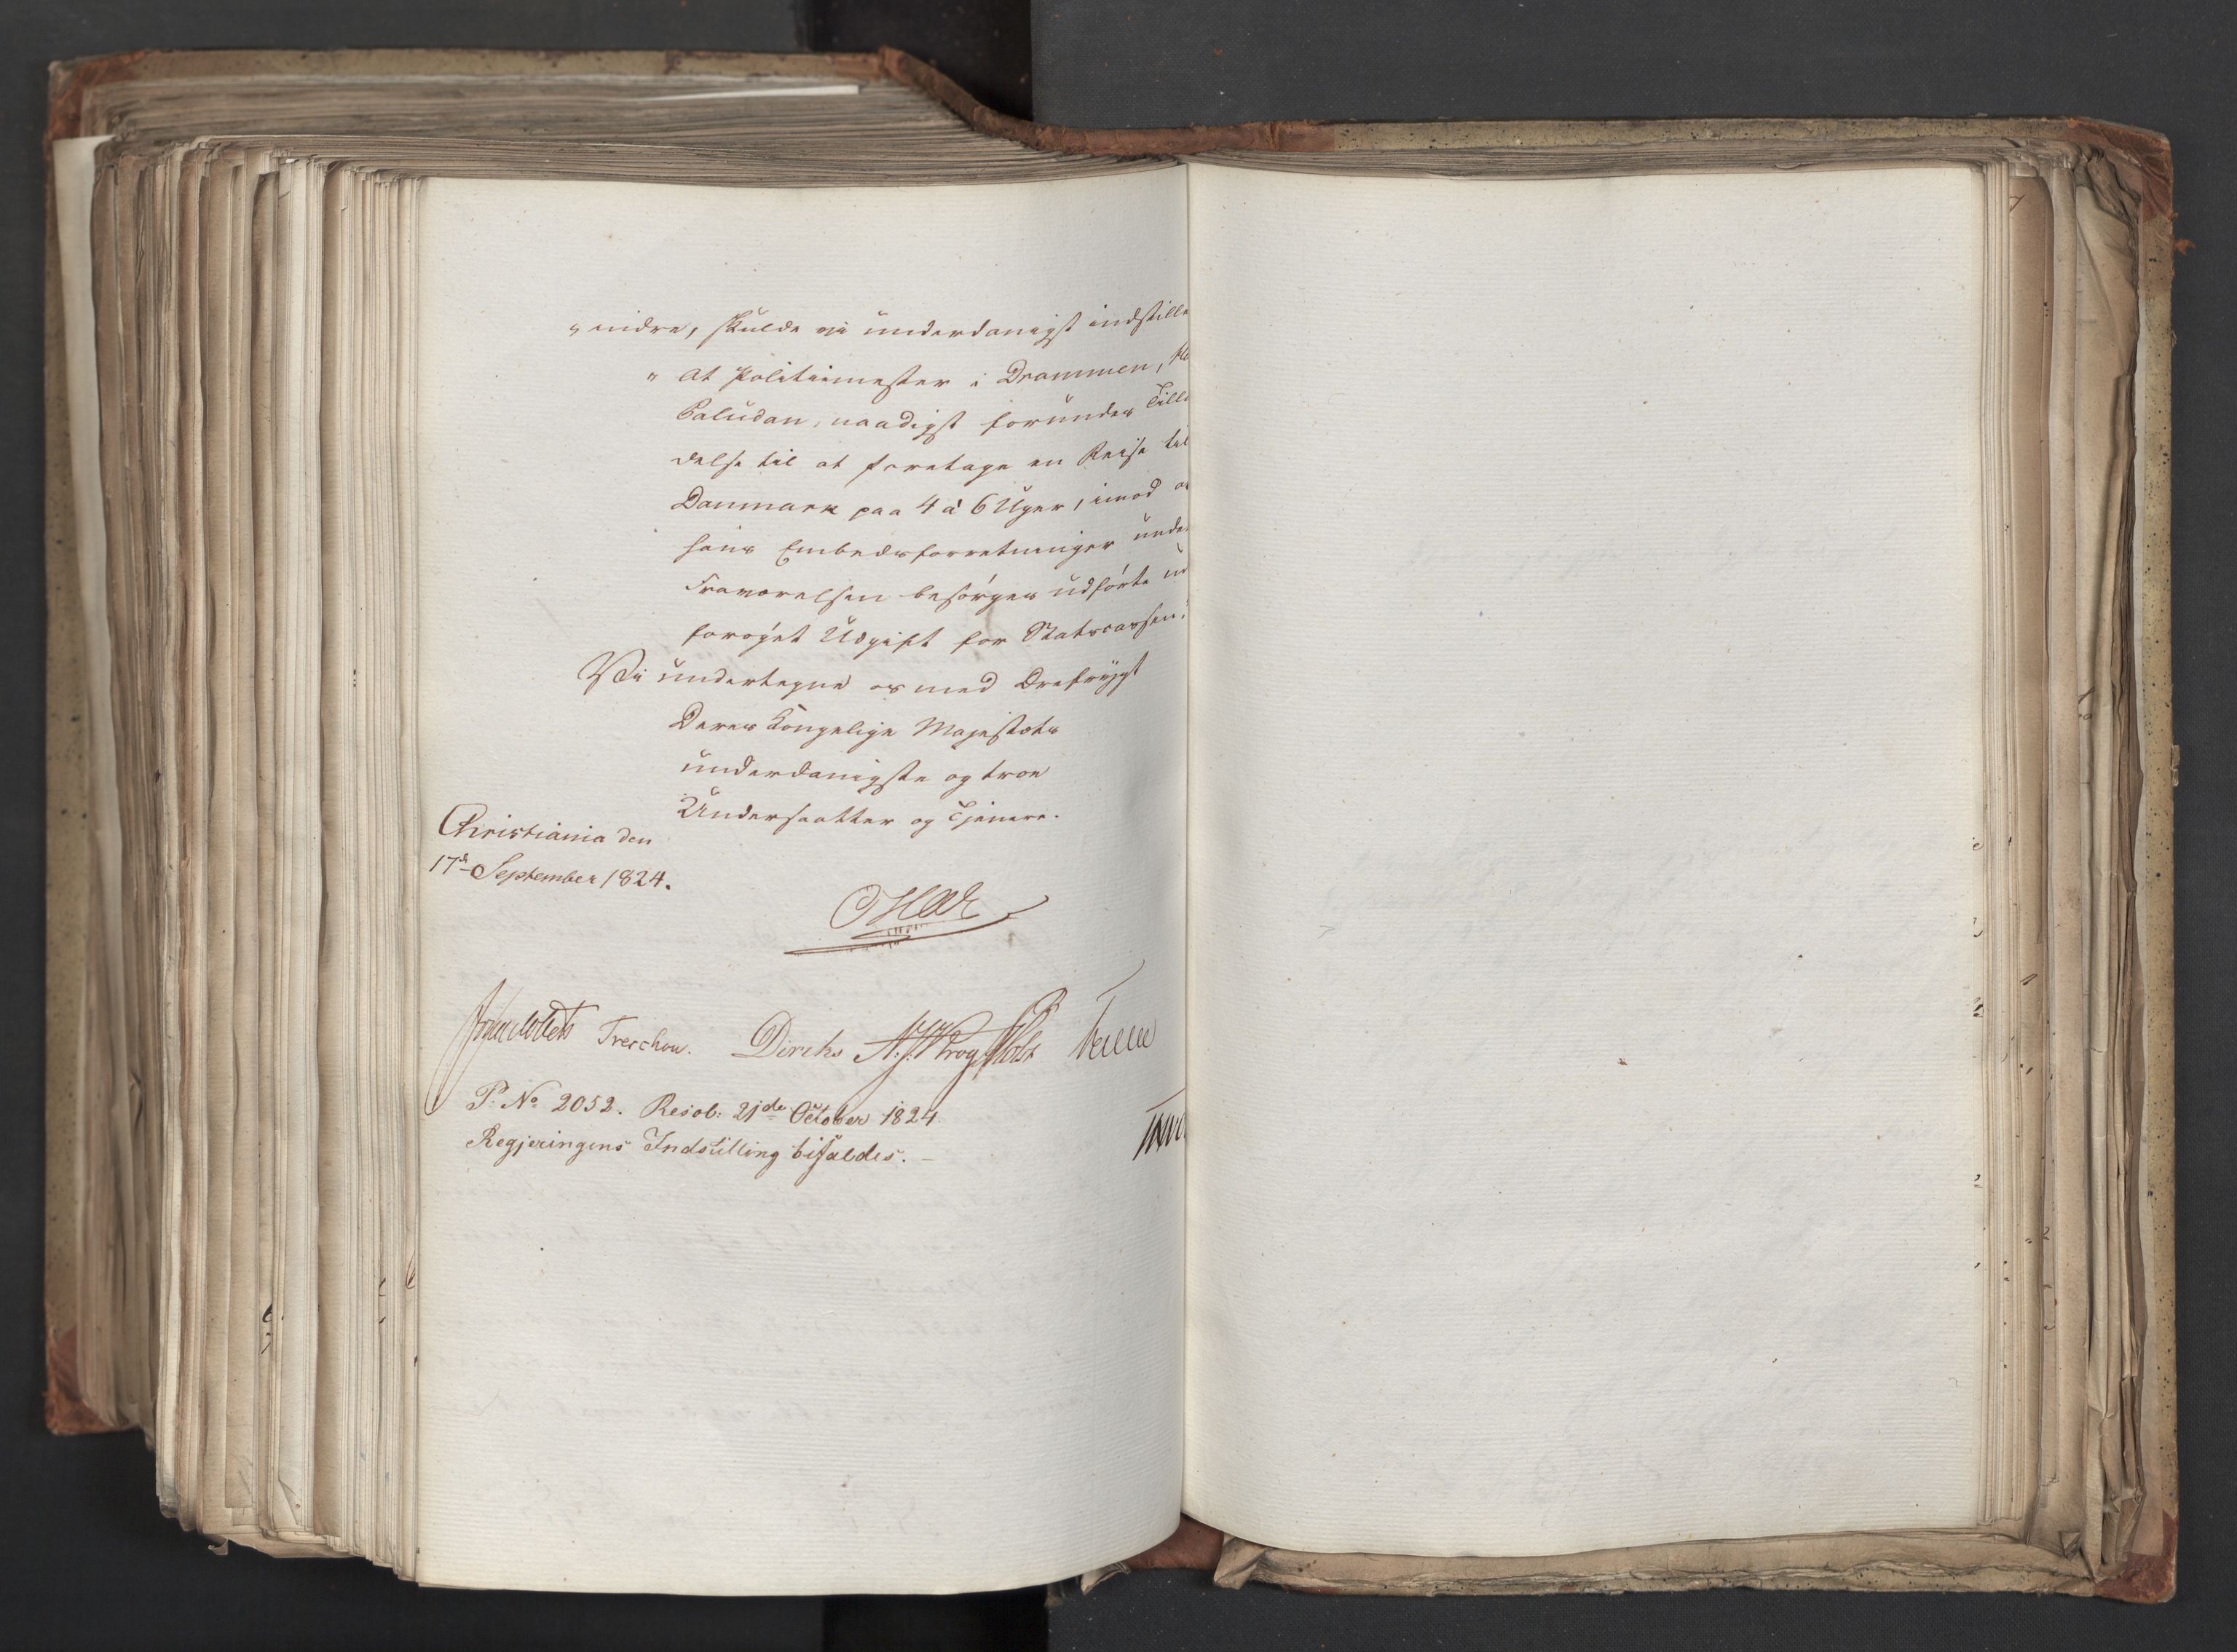 " indre, skulde vi underdanigst indstille
" At Politiemester i Drammen,
Paludan, naadigst forundes Tilla
delse til at foretage en Reise til
Danmark paa 4 à 6 Uger, imod at
hans Embedsforretninger under
Fraværelsen besørges udførte
forøget Udgift for Statscassen.
Vi undertegne os med Ærefrygt
Deres Kongelige Majestæts
underdanigste og troe
Undersaatter og Tjenere.
Christiania den
17de September 1824.
Oscar
Treschow. Diriks A. J. Krog Holst
P: No 2052. Resol: 21de October 1824.
Regjeringens Indstilling bifaldes.